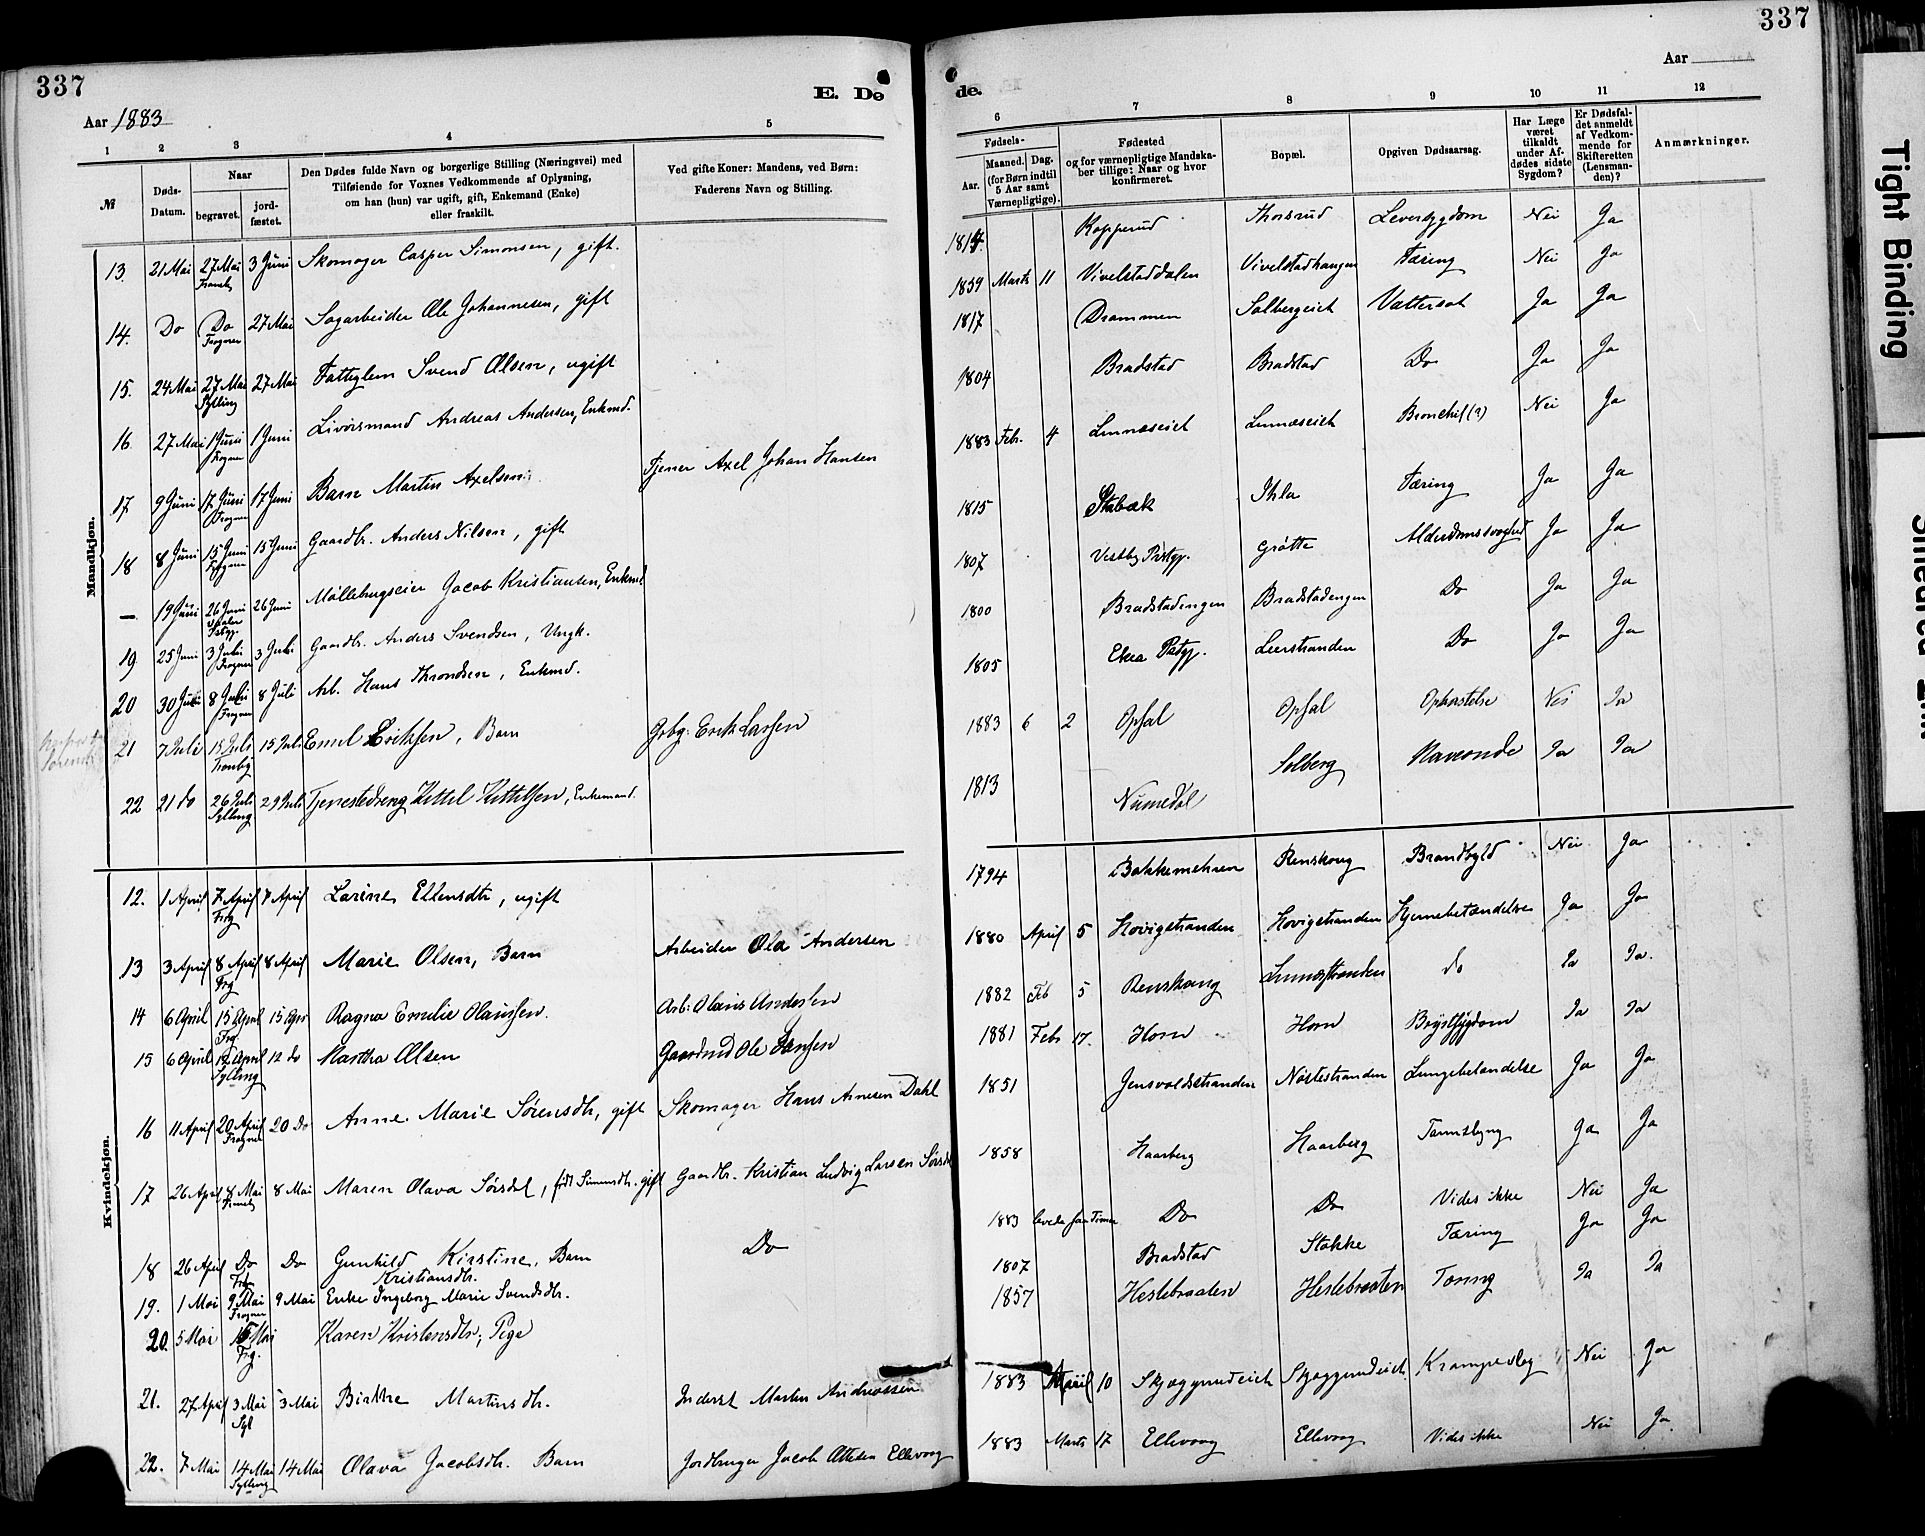 337
E. Dø
Aar 1883
1 2 3 4 5
№
Døds-
Datum.
Naar
begravet.
jord-
fæstet.
Den Dødes fulde Navn og borgerlige Stilling (Næringsvei) med
Tilføiende for Voxnes Vedkommende af Oplysning,
om han (hun) var ugift, gift, Enkemand (Enke)
eller fraskilt.
Ved gifte Koner: Mandens, ved Børn:
Faderens Navn og Stilling.
Mandkjøn.
13. 21 Mai 27 Mai Tranby 3 Juni Skomager Casper Simonsen, gift.
14. Do Do Frogner 27 Mai Sagarbeider Ole Johannesen, gift
15. 24 Mai 27 Mai Sylling 27 Mai Fattiglem Svend Olsen, ugift
16 27 Mai 1 Juni Frogner 1 Juni Livørsmand Andreas Andersen, Enkmd.
17 9 Juni 17 Juni Frogner 17 Juni Barn Martin Axelsen Tjener Axel Johan Hansen
18 8 Juni 15 Juni Frogner 15 Juni Gaardbr. Anders Nilsen, gift
— 19 Juni 26 Juni Pstgj. 26 Juni Møllebrugseier Jacob Kristiansen, Enkmd
19 25 Juni 3 Juli Frogner 3 Juli Gaardbr. Anders Svendsen, Ungk.
20 30 Juni 8 Juli Frogner 8 Juli Arb. Hans Throndsen, Enkmd.
21 7 Juli 15 Juli Tranby 15 Juli Emil Eriksen, Barn Jrbg: Erik Larsen
22 21 do 26 Juli Sylling 29 Juli Tjenestedreng Kittel Kittelsen, Enkemand.
Kvindekjøn.
12. 1 April 7 April Frg 7 April Larine Ellensdtr, ugift
13 3 April 8 April Frg 8 April Marie Olsen, Barn Arbeider Ole Andersen
14 6 April 15 April Frg 15 Apr Ragna Emilie Olaussen. Arb: Olaus Andersen
15 6 April 12 April Sylling 12 do Martha Olsen Gaardmd Ole Hansen
16 11 April 20 April Frogner 20 Do Anne Marie Sørensdtr, gift Skomager Hans Arnesen Dahl
17 26 April 8 Mai Tranby 8 Mai Maren Olava Sørsdal, født Simensdtr. gift Gaardbr. Kristian Ludvig Larsen Sørsdal
18 26 April Do Frb Do Gunhild Kirstine, Barn Do
Kristiansdtr.
19. 1 Mai 9 Mai Frogner 9 Mai Enke Ingeborg Marie Svendsdtr.
20. 5 Mai 15 Mai Frg. Karen Kristensdtr, Pige
21. 27 April 3 Mai Syl 3 Mai Birthe Martinsdtr. Inderst Martin Andreassen
22. 7 Mai 14 Mai Sylling 14 Mai Olava Jacobsdtr. Barn Jordbruger Jacob Ottesen Ellevaag
337
de.
Aar
6 7 8 9 10 11 12
Fødsels-
Aar.
Maaned. Dag.
(for Børn indtil
5 Aar samt
Værnepligtige).
Fødested
og for værnepligtige Mandska-
ber tillige: Naar og hvor
konfirmeret.
Bopæl.
Opgiven Dødsaarsag.
Har Læge
været
tilkaldt
under Af-
dødes sidste
Sygdom?
Er Dødsfal-
det anmeldt
af Vedkom-
mende for
Skifteretten
(Lensman-
den)?
Anmærkninger.
1814 Kopperud Thorsrud Leversygdom Nei Ja
1859 Marts 11 Vivelstaddalen Vivelstadhaugen Tæring Nei Ja
1817 Drammen Solbergeiet Vattersot Ja Ja
1804 Bradstad Bradstad Do Ja Ja
1883 Febr. 4 Linnæseiet Linnæseiet Bronchit (?) Nei Ja
1815 Stabæk Ihla Tæring Ja Ja
1807 Vestby Pstgj. Grøtte Alderdomssvaghed Ja Ja
1800 Bradstadengen Bradstadengen Do Ja Ja
1805 Eker Pstgj. Leerstranden Do Ja Ja
1883 6 2 Opsal Opsal Ophostelse Nei Ja
1813 Numedal Solberg Maveonde Ja Ja
1794 Bakkemehren Renskoug Brandbyld Nei Ja
1880 April 5 Hovigstranden Hovigstranden Hjernebetændelse Ja Ja
1882 Feb 5 Renskoug Linnæsstranden do Ja Ja.
1881 Febr 17. Horn Horn Brystsygdom Ja Ja
1851 Jensvoldstranden Nøstestranden Lungebetændelse Ja Ja
1858 Haarberg Haarberg Ja Ja
1883 levede faa Timer Do Do Vides ikke Nei Ja
1807 Bradstad Stokke Tæring Ja Ja
1857 Heslebraaten Heslebraaten Tæring Ja Ja
1883 April 10 Skjæggerudeiet Skjæggerudeiet Krampeslag Nei Ja
1883 Marts 17 Ellevaag Ellevaag Vides ikke Nei Ja.
Tight Binding